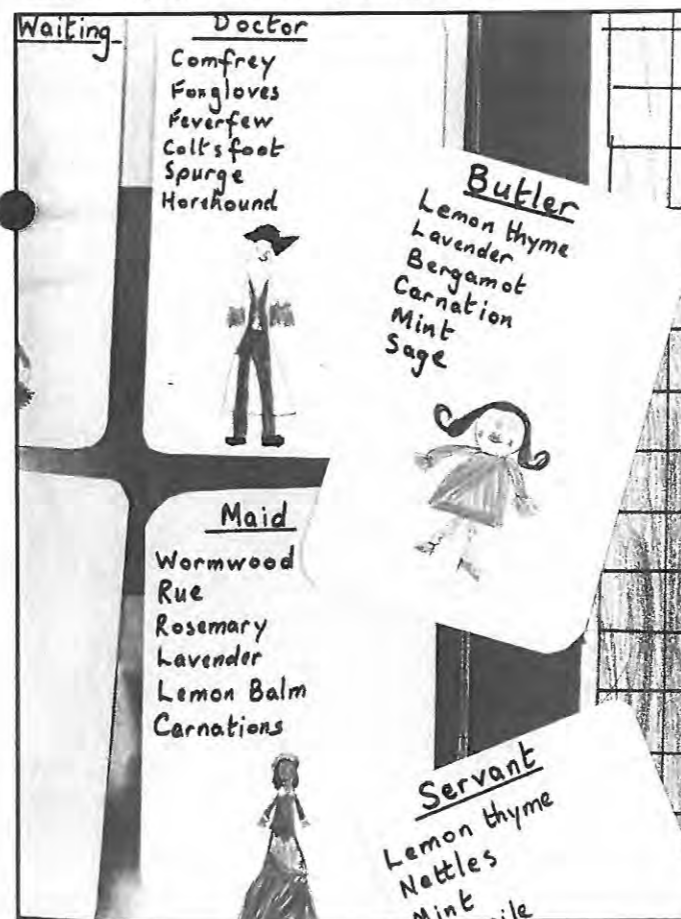 Waiting
Doctor
Comfrey
Foxgloves
Feverfew
Coltsfoot
Spurge
Horehound
Butler
Lemon thyme
Lavender
Bergamot
Carnation
Mint
Sage
Maid
Wormwood
Rue
Rosemary
Lavender
Lemon Balm
Carnations
Servant
Lemon thyme
Nettles
Mint